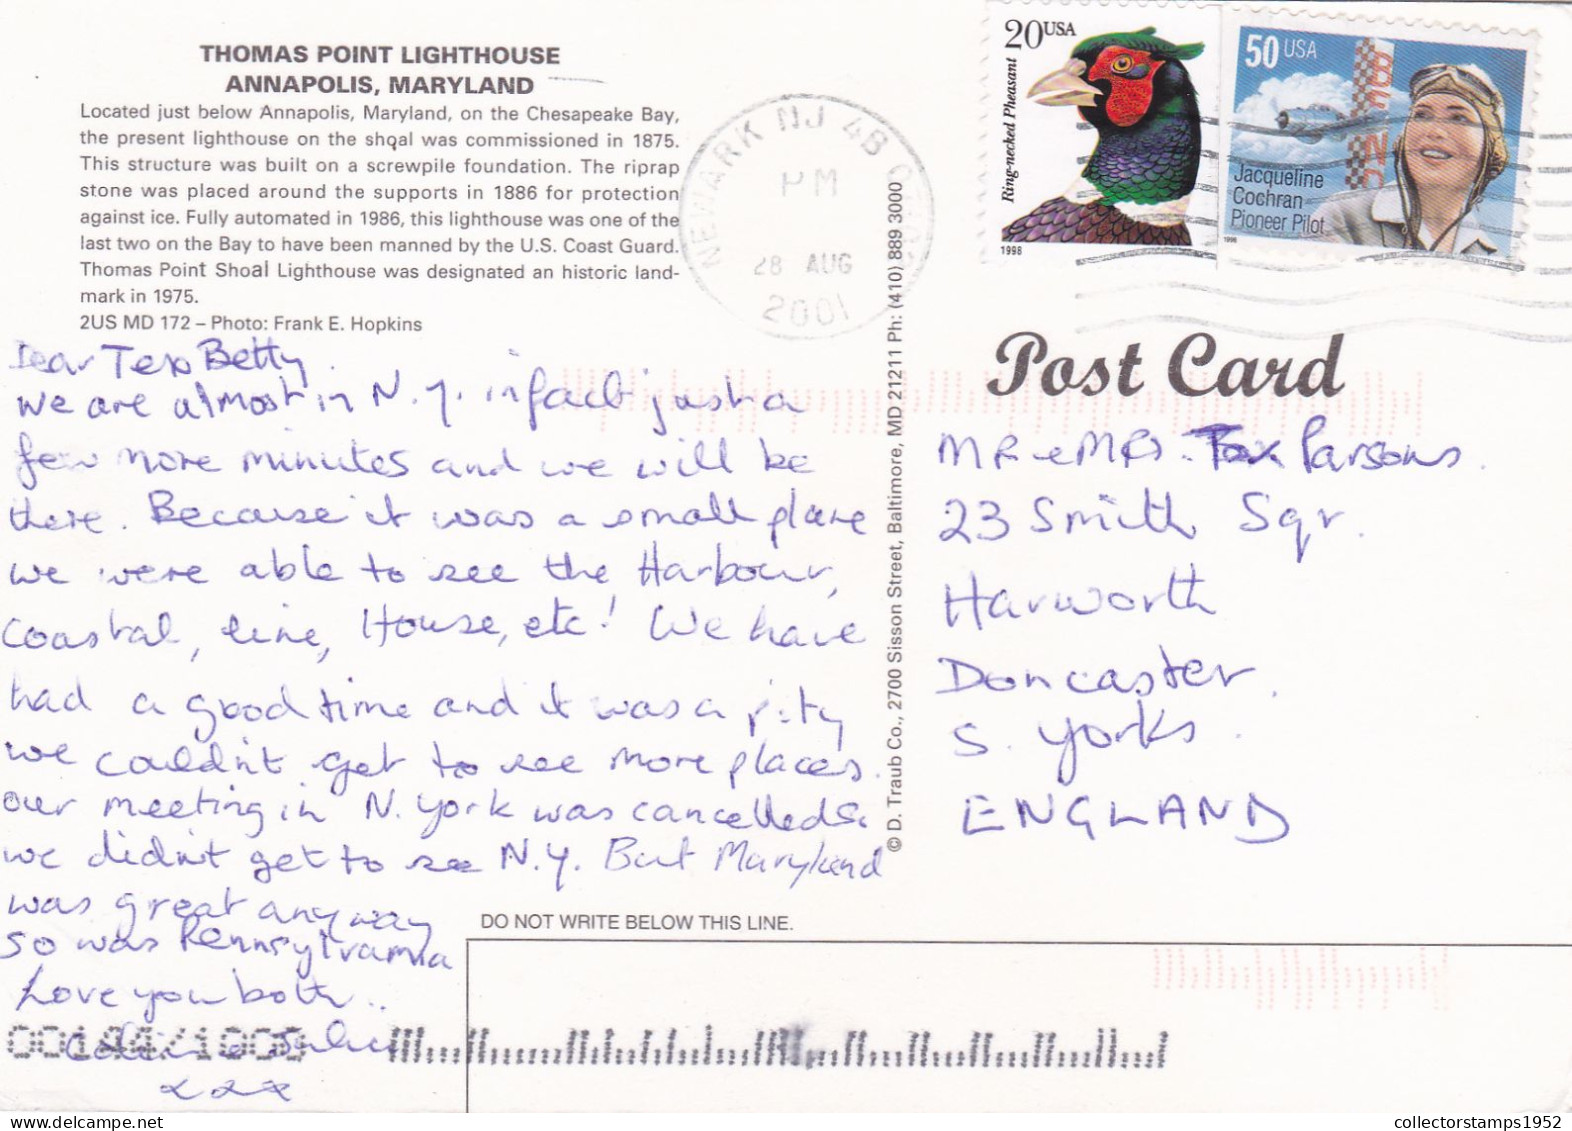 THOMAS POINT LIGHTHOUSE
ANNAPOLIS, MARYLAND
Located just below Annapolis, Maryland, on the Chesapeake Bay,
the present lighthouse on the shoal was commissioned in 1875.
This structure was built on a screwpile foundation. The riprap
stone was placed around the supports in 1886 for protection
against ice. Fully automated in 1986, this lighthouse was one of the
last two on the Bay to have been manned by the U.S. Coast Guard.
Thomas Point Shoal Lighthouse was designated an historic land-
mark in 1975.
2US MD 172 – Photo: Frank E. Hopkins
Dear Tex Betty.
We are almost in N.Y. infact just a
few more minutes and we will be
there. Because it was a small plane
we were able to see the Harbour,
coastal, line, House, etc! We have
had a good time and it was a pity
we couldn't get to see more places.
our meeting in N. York was cancelled &
we didn't get to see N.Y. But Maryland
was great anyway
so was Pennsylvania
Love you both..
xxx
NEWARK NJ
PM
28 AUG
2001
20USA
Ring-necked Pheasant
1998
50 USA
Jacqueline
Cochran
Pioneer Pilot
1996
Post Card
MR & MRS. Tex Parsons.
23 Smith Sqr.
Harworth
Doncaster.
S. Yorks.
ENGLAND
© D. Traub Co., 2700 Sisson Street, Baltimore, MD 21211 Ph: (410) 889 3000
DO NOT WRITE BELOW THIS LINE.
collectorstamps1952